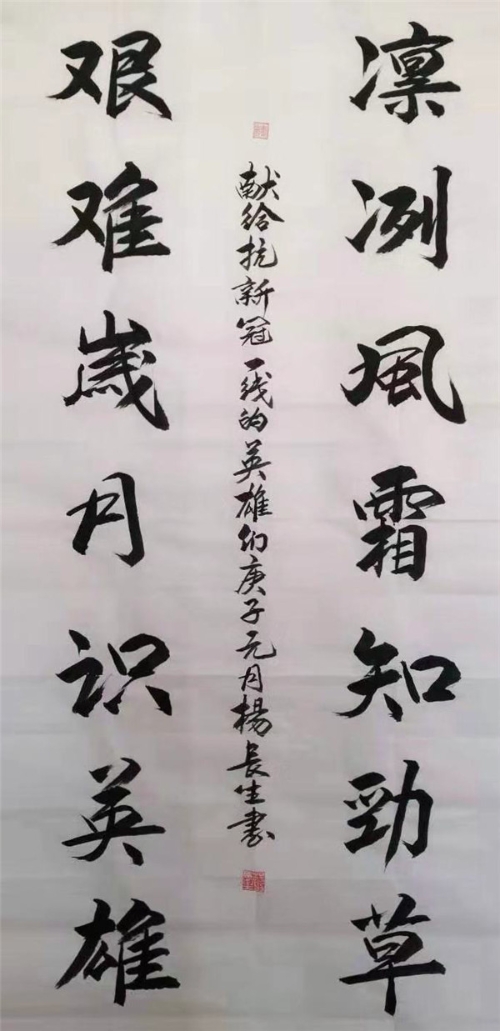 凛冽風霜知勁草
献给抗新冠一线的英雄们庚子元月楊長生書
艰难歲月识英雄